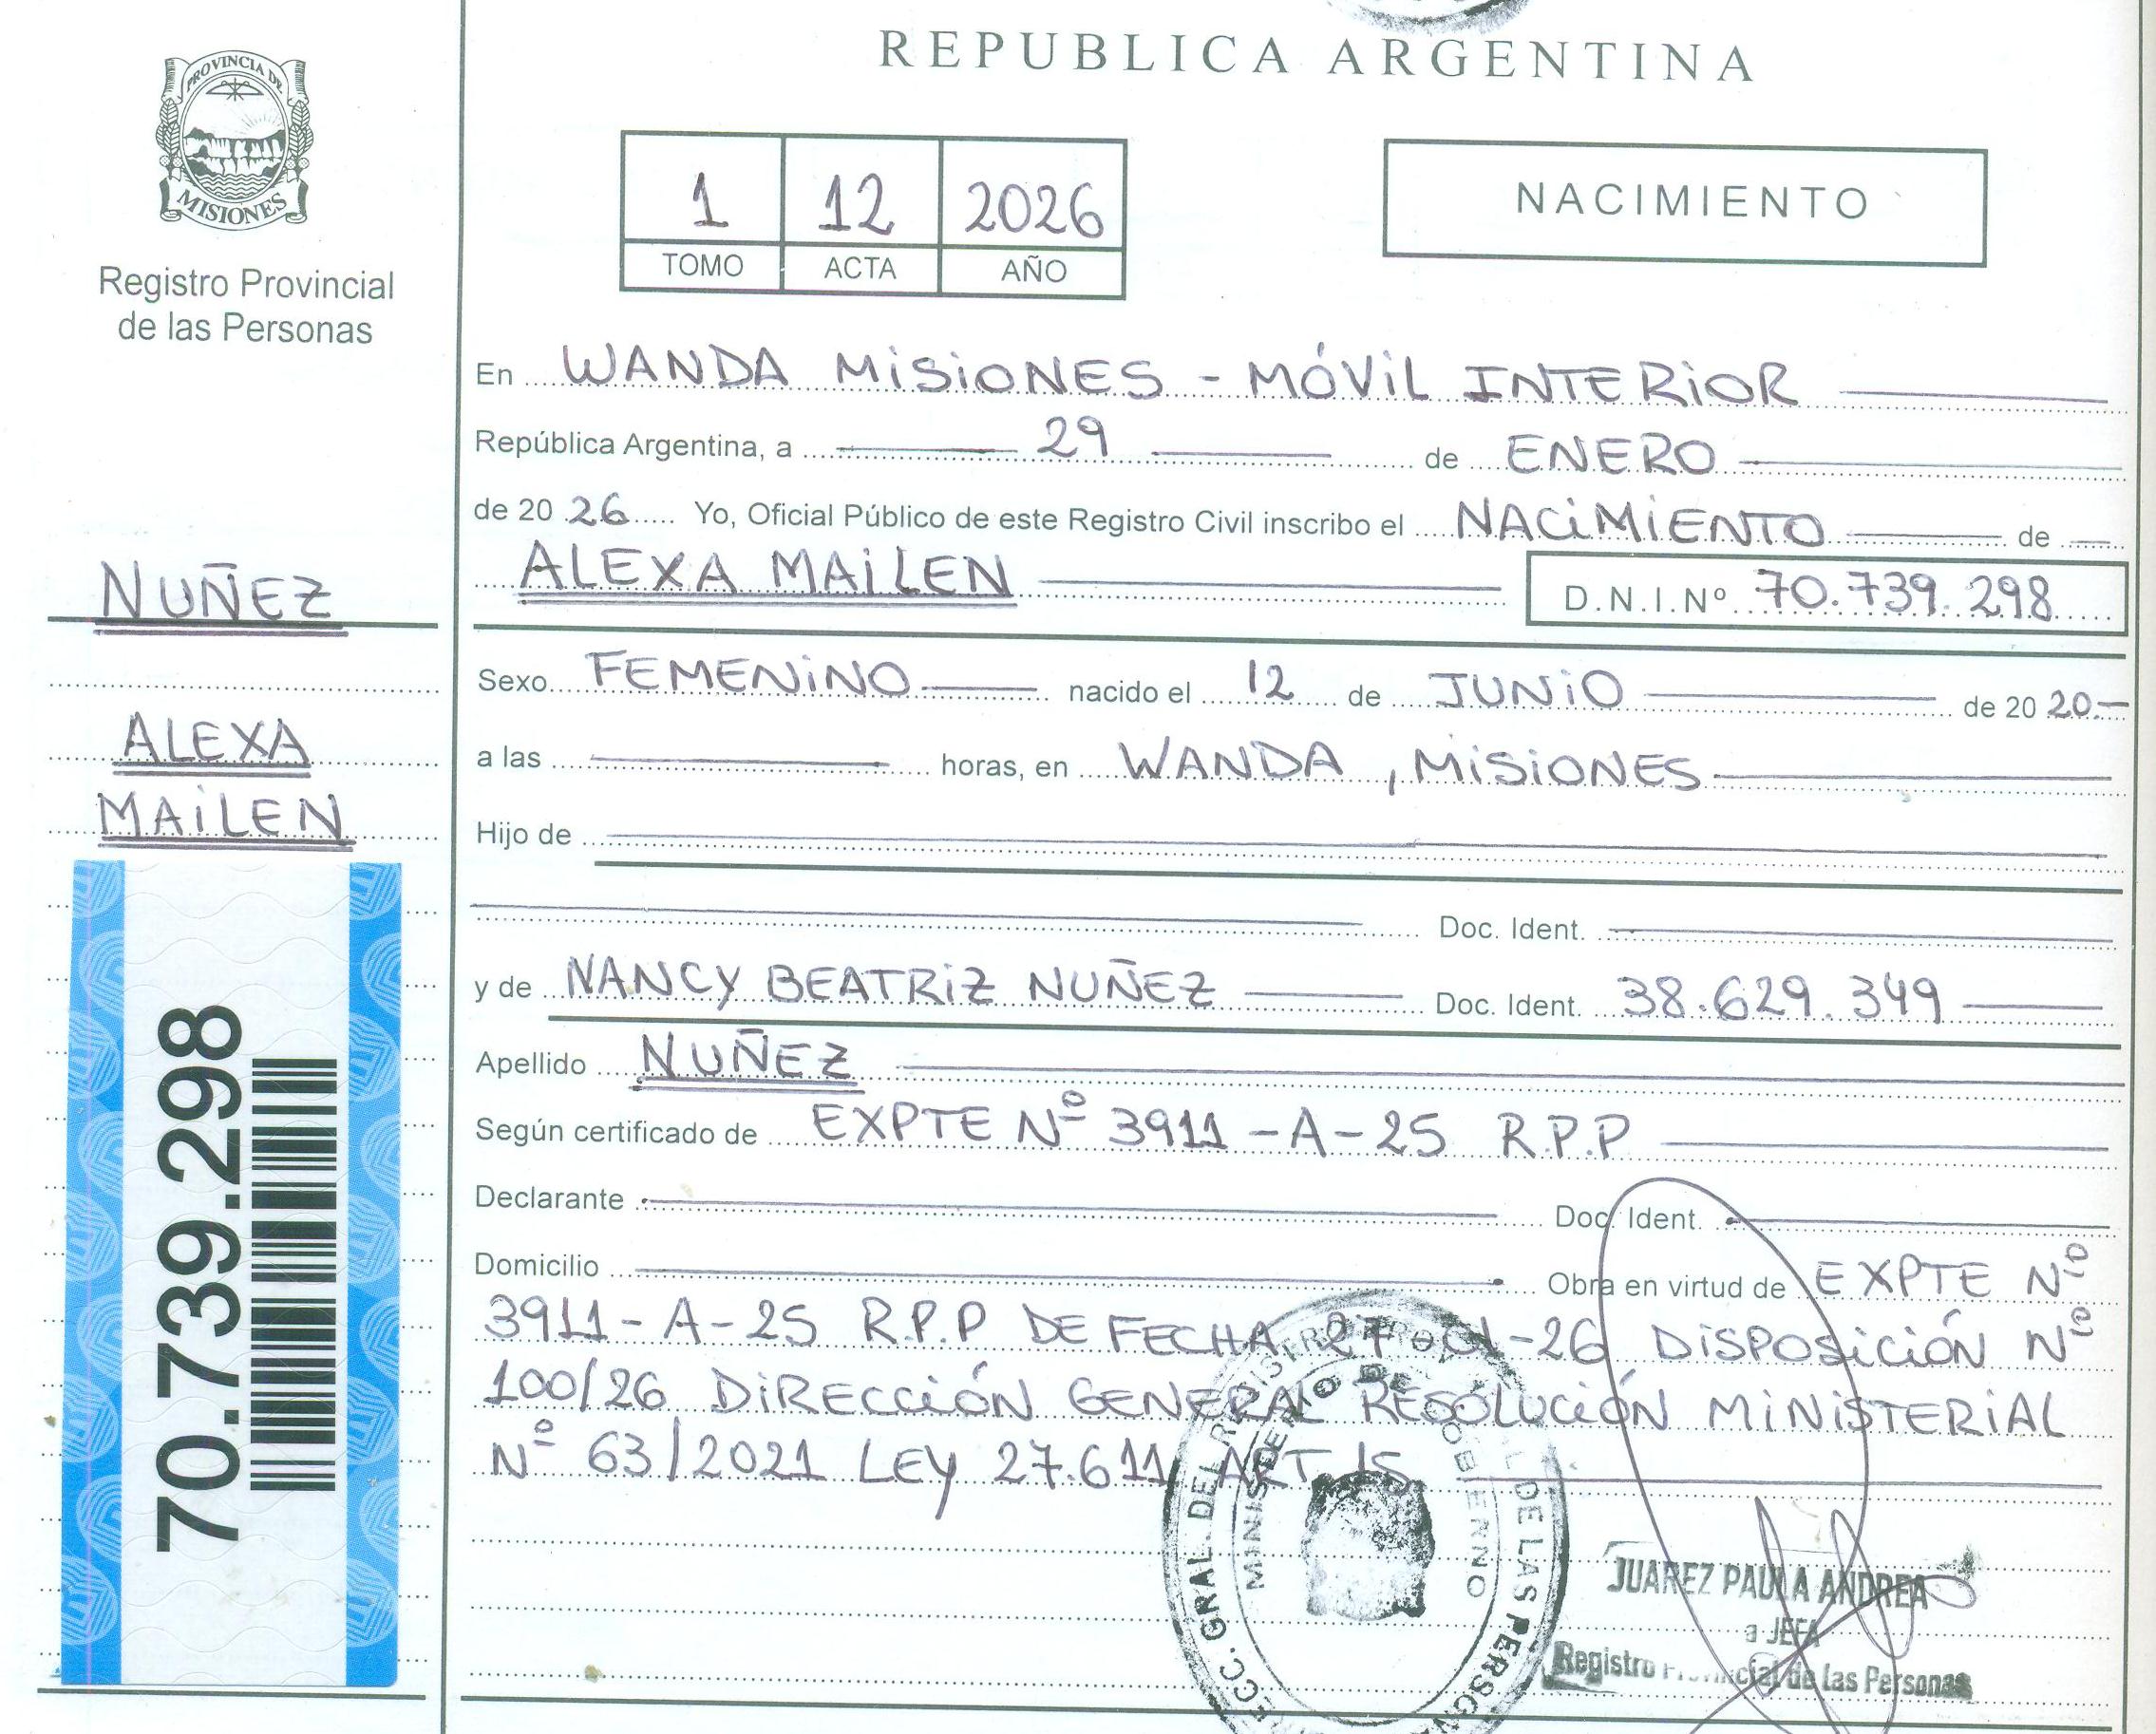 REPUBLICA ARGENTINA
PROVINCIA DE
MISIONES
Registro Provincial
de las Personas
1 12 2026
TOMO ACTA AÑO
NACIMIENTO
En WANDA MISIONES - MÓVIL INTERIOR
República Argentina, a 29 de ENERO
de 20 26 Yo, Oficial Público de este Registro Civil inscribo el NACIMIENTO de
ALEXA MAILEN D.N.I.Nº 70.739.298
NUÑEZ
ALEXA
MAILEN
70.739.298
Sexo FEMENINO nacido el 12 de JUNIO de 20 20.-
a las horas, en WANDA, MISIONES
Hijo de
Doc. Ident.
y de NANCY BEATRIZ NUÑEZ Doc. Ident. 38.629.349
Apellido NUÑEZ
Según certificado de EXPTE Nº 3911-A-25 R.P.P
Declarante Doc. Ident.
Domicilio Obra en virtud de EXPTE Nº
3911-A-25 R.P.P DE FECHA 27-01-26 DISPOSICIÓN Nº
100/26 DIRECCIÓN GENERAL RESOLUCIÓN MINISTERIAL
Nº 63/2021 LEY 27.611 ART 15
MINISTERIO DE GOBIERNO
JUAREZ PAULA ANDREA
a JEFA
Registro Provincial de las Personas